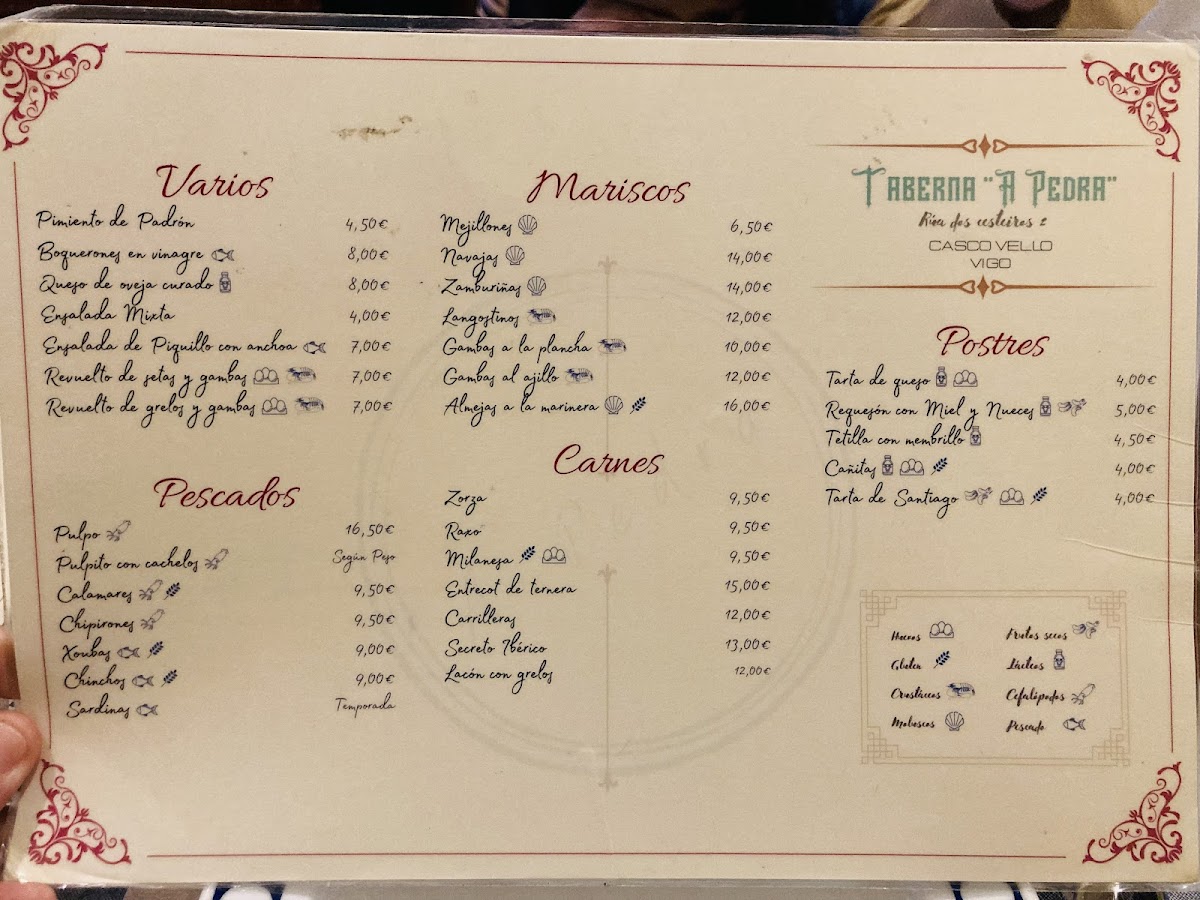 Varios
Pimiento de Padrón 4,50€
Boquerones en vinagre 8,00€
Queso de oveja curado 8,00€
Ensalada Mixta 4,00€
Ensalada de Piquillo con anchoa 7,00€
Revuelto de setas y gambas 7,00€
Revuelto de grelos y gambas 7,00€
Pescados
Pulpo 16,50€
Pulpito con cachelos Según Peso
Calamares 9,50€
Chipirones 9,50€
Xoubas 9,00€
Chinchos 9,00€
Sardinas Temporada
Mariscos
Mejillones 6,50€
Navajas 14,00€
Zamburiñas 14,00€
Langostinos 12,00€
Gambas a la plancha 10,00€
Gambas al ajillo 12,00€
Almejas a la marinera 16,00€
Carnes
Zorza 9,50€
Raxo 9,50€
Milanesa 9,50€
Entrecot de ternera 15,00€
Carrilleras 12,00€
Secreto Ibérico 13,00€
Lacón con grelos 12,00€
Taberna "A Pedra"
Rúa dos cesteiros 2
CASCO VELLO
VIGO
Postres
Tarta de queso 4,00€
Requesón con Miel y Nueces 5,00€
Tetilla con membrillo 4,50€
Cañitas 4,00€
Tarta de Santiago 4,00€
Huevos Frutos secos
Gluten Lácteos
Crustáceos Cefalópodos
Moluscos Pescado